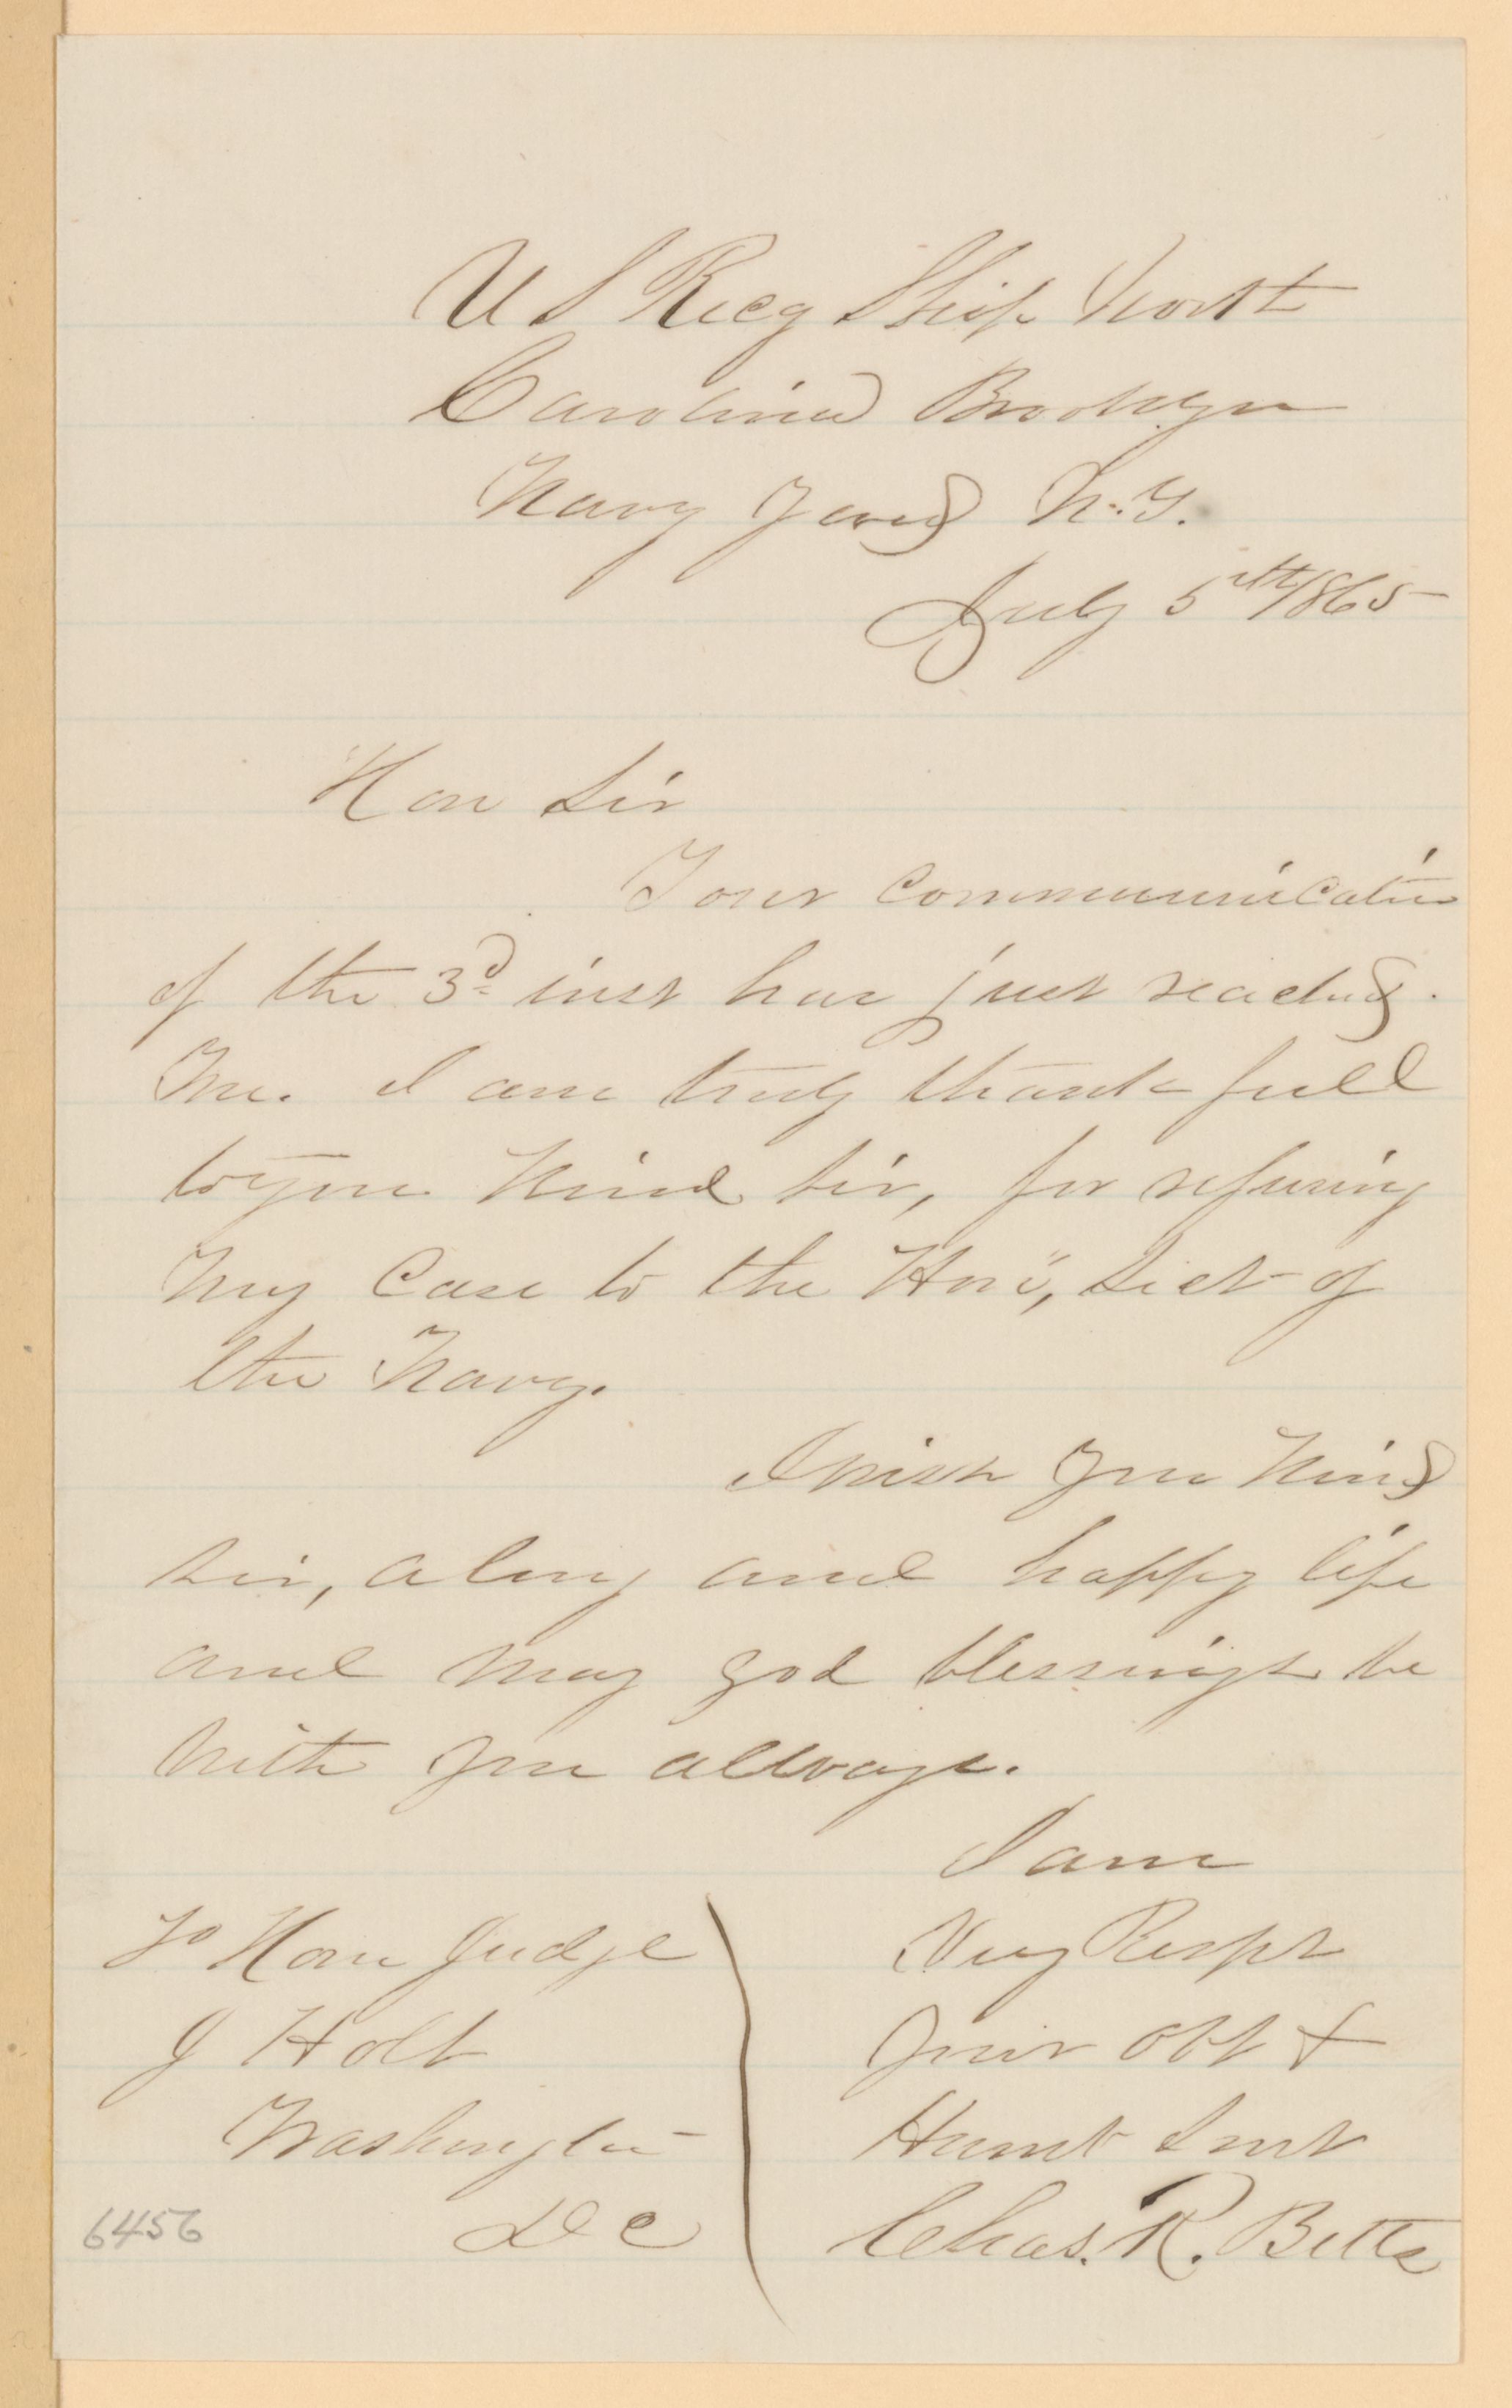 U S Recg Ship North
Carolina Brooklyn
Navy Yard N.Y.
July 5th/1865
Hon Sir
Your Communication
of the 3d inst has just reached
Me. I am truly thankfull
to you Kind Sir, for refering
My Case to the Hon, Sect of
the Navy.
I wish you Kind
Sir, a long and happy life
and may god blessings be
with you allways.
I am
Very Respt
Your Obt &
Humb Servt
Chas. R. Betts
To Hon Judge
J Holt
Washington
D C
6456